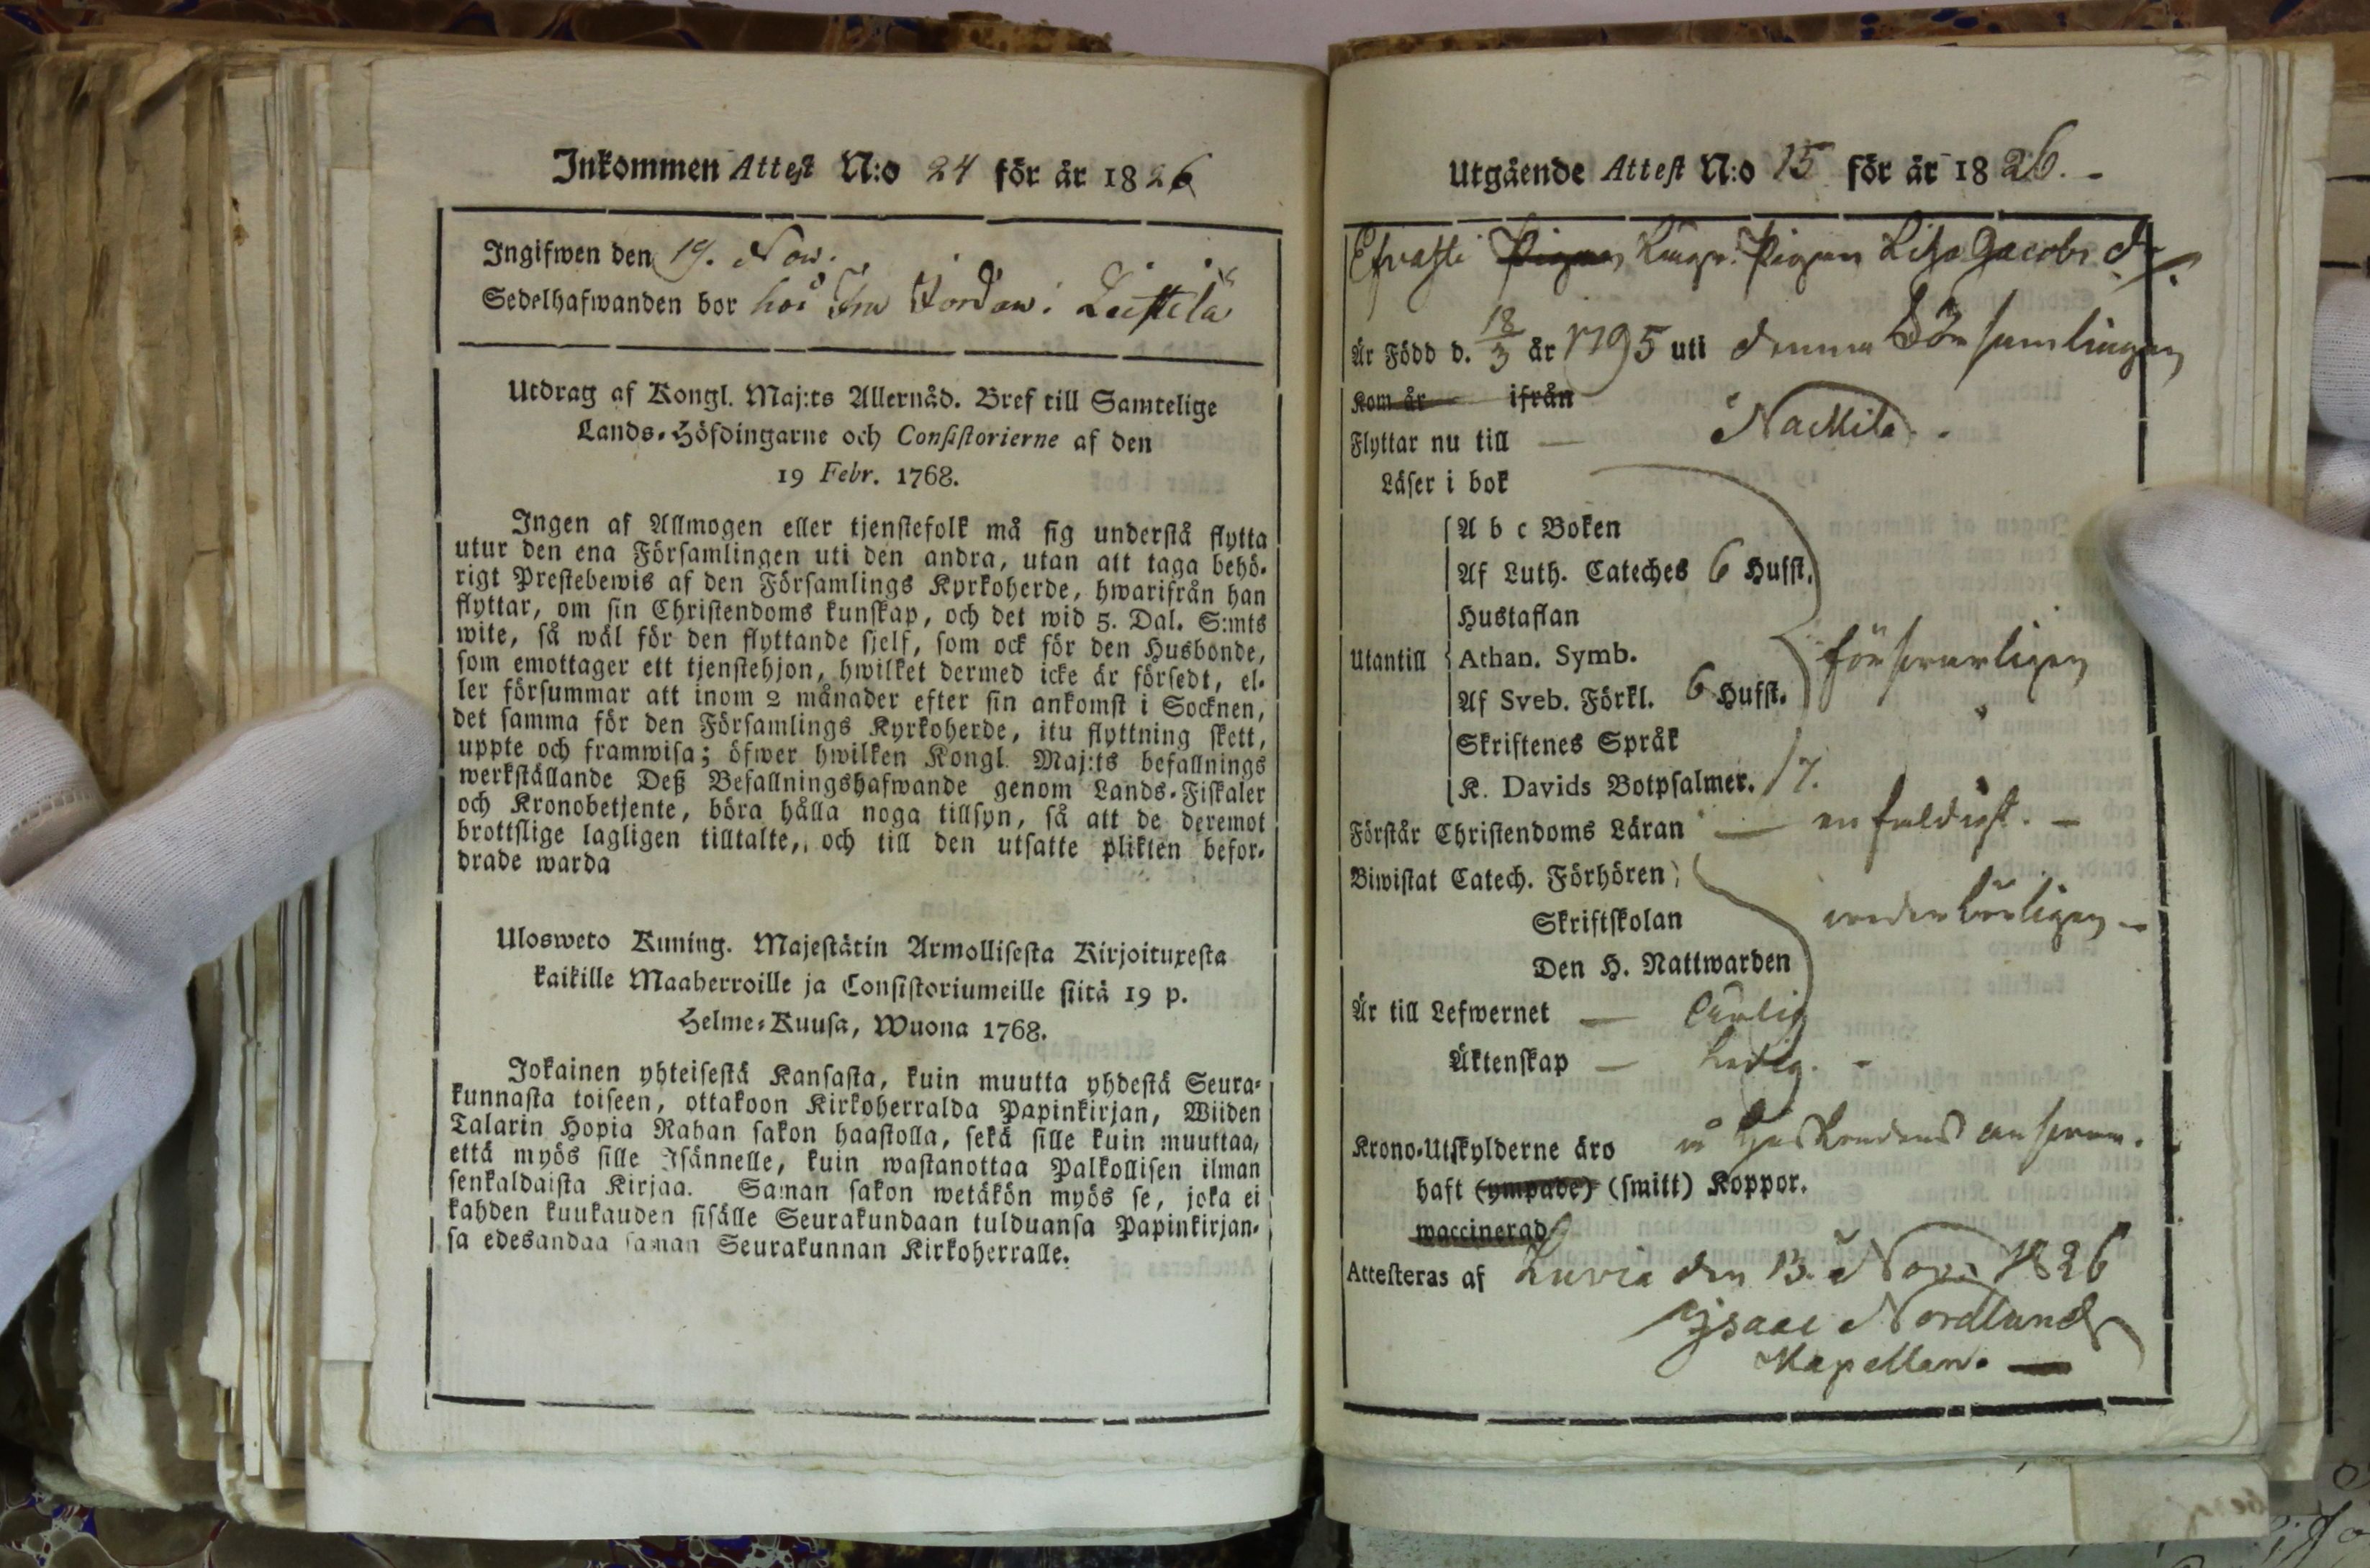 Inkommen Attest N:o 24 för år 1826
Ingifwen den 19. Nov.
Sedelhafwanden bor hos Fru Jordan i Leistilä
Utdrag af Kongl. Maj:ts Allernåd. Bref till Samtelige
Lands-Höfdingarne och Consistorierne af den
19 Febr. 1768.
Ingen af Allmogen eller tjenstefolk må sig understå flytta
utur den ena Församlingen uti den andra, utan att taga behö-
rigt Prestebewis af den Församlings Kyrkoherde, hwarifrån han
flyttar, om sin Christendoms kunskap, och det wid 5. Dal. S:mts
wite, så wäl för den flyttande sjelf, som ock för den Husbonde,
som emottager ett tjenstehjon, hwilket dermed icke är försedt, el-
ler försummar att inom 2 månader efter sin ankomst i Socknen,
det samma för den Församlings Kyrkoherde, itu flyttning skett,
uppte och framwisa; öfwer hwilken Kongl. Maj:ts befallnings
werkställande Deß Befallningshafwande genom Lands-Fiskaler
och Kronobetjente, böra hålla noga tillsyn, så att de deremot
brottslige lagligen tilltalte, och till den utsatte plikten befor-
drade warda
Ulosweto Kuning. Majestätin Armollisesta Kirjoituxesta
kaikille Maaherroille ja Consistoriumeille siitä 19 p.
Helme-Kuusa, Wuona 1768.
Jokainen yhteisestä Kansasta, kuin muutta yhdestä Seura-
kunnasta toiseen, ottakoon Kirkoherralda Papinkirjan, Wiiden
Talarin Hopia Rahan sakon haastolla, sekä sille kuin muuttaa,
että myös sille Isännelle, kuin wastanottaa Palkollisen ilman
senkaldaista Kirjaa. Saman sakon wetäkön myös se, joka ei
kahden kuukauden sisälle Seurakundaan tulduansa Papinkirjan-
sa edesandaa saman Seurakunnan Kirkoherralle.
Utgående Attest N:o 15 för år 1826.
Pigan Lisa Jacobs dr
Är Född d. 18/3 år 1795 uti denna Församlingen
Kom år ifrån
Flyttar nu till Nackila
Läser i bok
A b c Boken
Af Luth. Cateches 6 Hufst.
Hustaflan
Utantill Athan. Symb. försvarligen
Af Sveb. Förkl. 6 Hufst.
Skriftenes Språk
K. Davids Botpsalmer. 7.
Förstår Christendoms Läran enfaldigt.
Biwistat Catech. Förhören
Skriftskolan vederbörligen
Den H. Nattwarden
Är till Lefwernet ärlig
Äktenskap ledig.
Krono-Utskylderne äro Husbondens ansvar.
haft (ympade) (smitt) Koppor.
waccinerad
Attesteras af Luvia den 13. Nov. 1826
Isaac Nordlund
Kapellan.